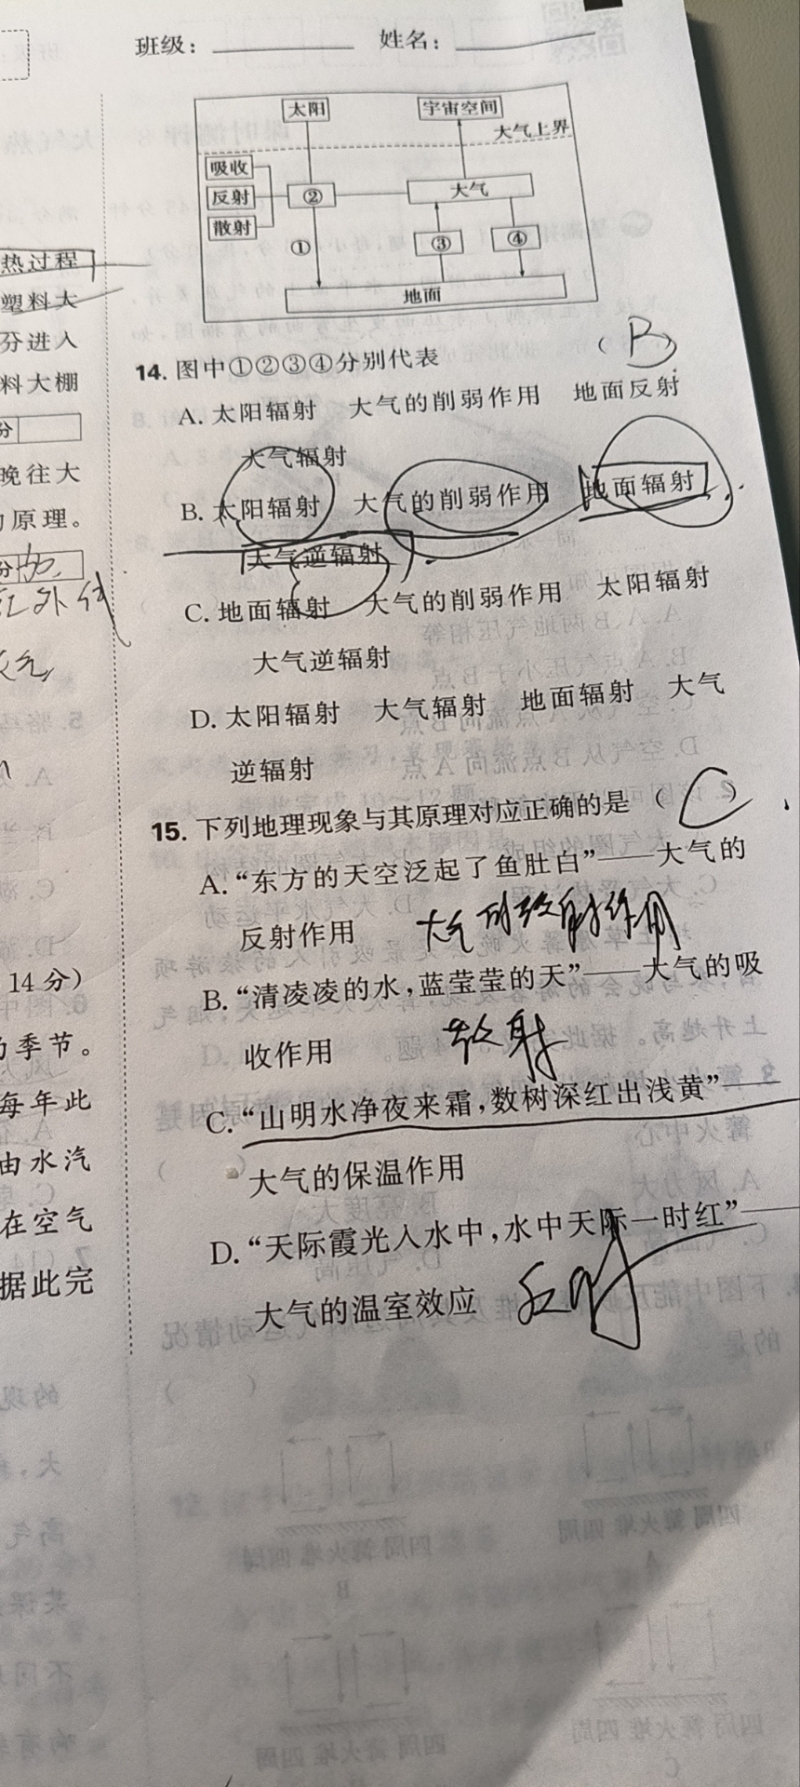 班级： 姓名：
太阳 宇宙空间
大气上界
吸收
反射 ② 大气
散射
① ③ ④
地面
热过程
塑料大
分进入
料大棚
分
晚往大
原理。
分
红外线
14分）
季节。
每年此
由水汽
在空气
据此完
14. 图中①②③④分别代表 （B）
A. 太阳辐射 大气的削弱作用 地面反射
大气辐射
B. 太阳辐射 大气的削弱作用 地面辐射
大气逆辐射
C. 地面辐射 大气的削弱作用 太阳辐射
大气逆辐射
D. 太阳辐射 大气辐射 地面辐射 大气
逆辐射
15. 下列地理现象与其原理对应正确的是 （C）
A. “东方的天空泛起了鱼肚白”——大气的
反射作用 大气 散射作用
B. “清凌凌的水，蓝莹莹的天”——大气的吸
收作用 散射
C. “山明水净夜来霜，数树深红出浅黄”——
大气的保温作用
D. “天际霞光入水中，水中天际一时红”——
大气的温室效应